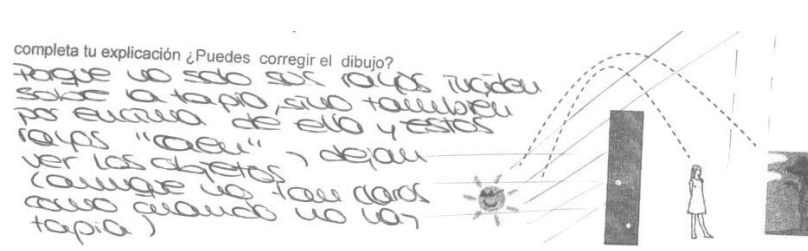 completa tu explicación ¿Puedes corregir el dibujo?
Porque no solo sus rayos inciden
sobre la tapia, sino tambien
por encima de ella y estos
rayos "caen" y dejan
ver los objetos
(aunque no tan claros
como cuando no hay
tapia)